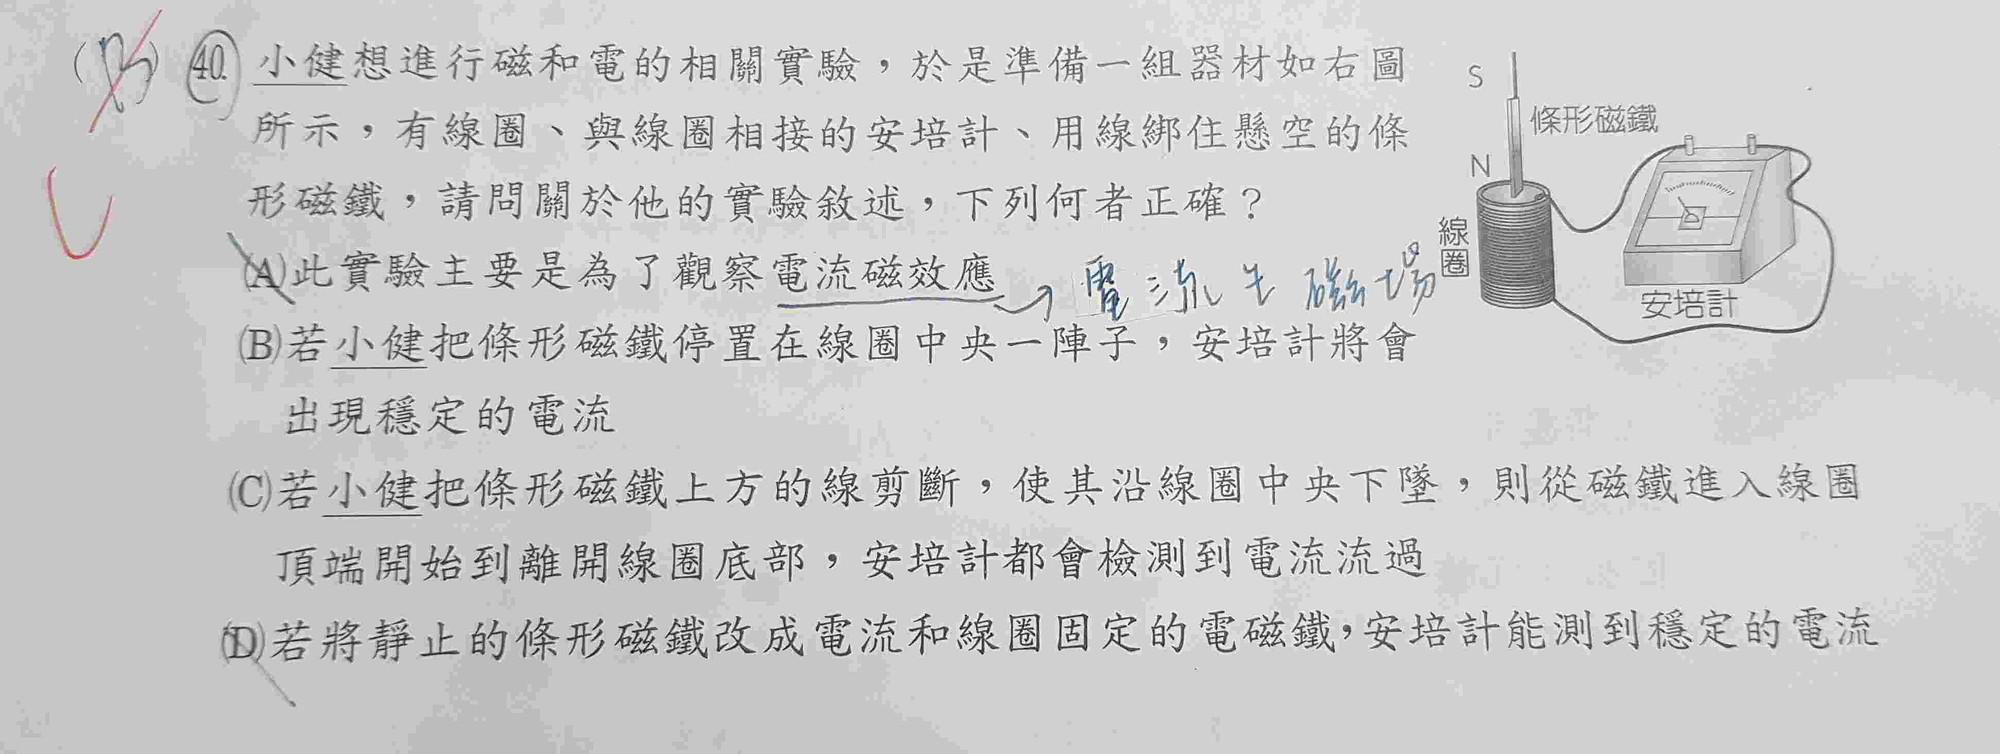 (B) 40. 小健想進行磁和電的相關實驗，於是準備一組器材如右圖
所示，有線圈、與線圈相接的安培計、用線綁住懸空的條
形磁鐵，請問關於他的實驗敘述，下列何者正確？
(A)此實驗主要是為了觀察電流磁效應 → 電流生磁場
(B)若小健把條形磁鐵停置在線圈中央一陣子，安培計將會
出現穩定的電流
(C)若小健把條形磁鐵上方的線剪斷，使其沿線圈中央下墜，則從磁鐵進入線圈
頂端開始到離開線圈底部，安培計都會檢測到電流流過
(D)若將靜止的條形磁鐵改成電流和線圈固定的電磁鐵，安培計能測到穩定的電流
S
條形磁鐵
N
線圈
安培計